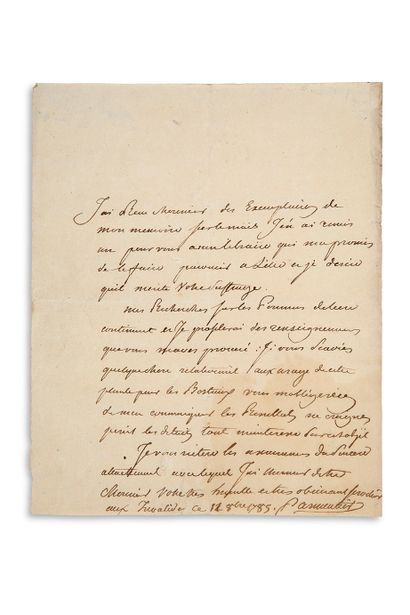 J'ai Recu Monsieur des Exemplaires de
mon memoire sur le mais J'en ai remis
un pour vous a un libraire qui m'a promis
de le faire parvenir a Lille et je desire
qu'il merite Votre Suffrage.
mes Recherches sur les Pommes de terre
continuent et Je profiterai des renseignemens
que vous m'avez procuré : Si vous Scaviez
quelque chose relativement aux usage de cette
plante pour les Bestiaux vous m'obligeriez
de m'en communiquer les Resultats ne craignez
point les details tout m'interesse Sur cet objet
Je vous reitere les assurances du Sincere
attachement avec lequel J'ai l'honneur d'etre
Monsieur Votre tres humble et tres obeissant Serviteur
aux Invalides ce 12 8bre 1785. Parmentier